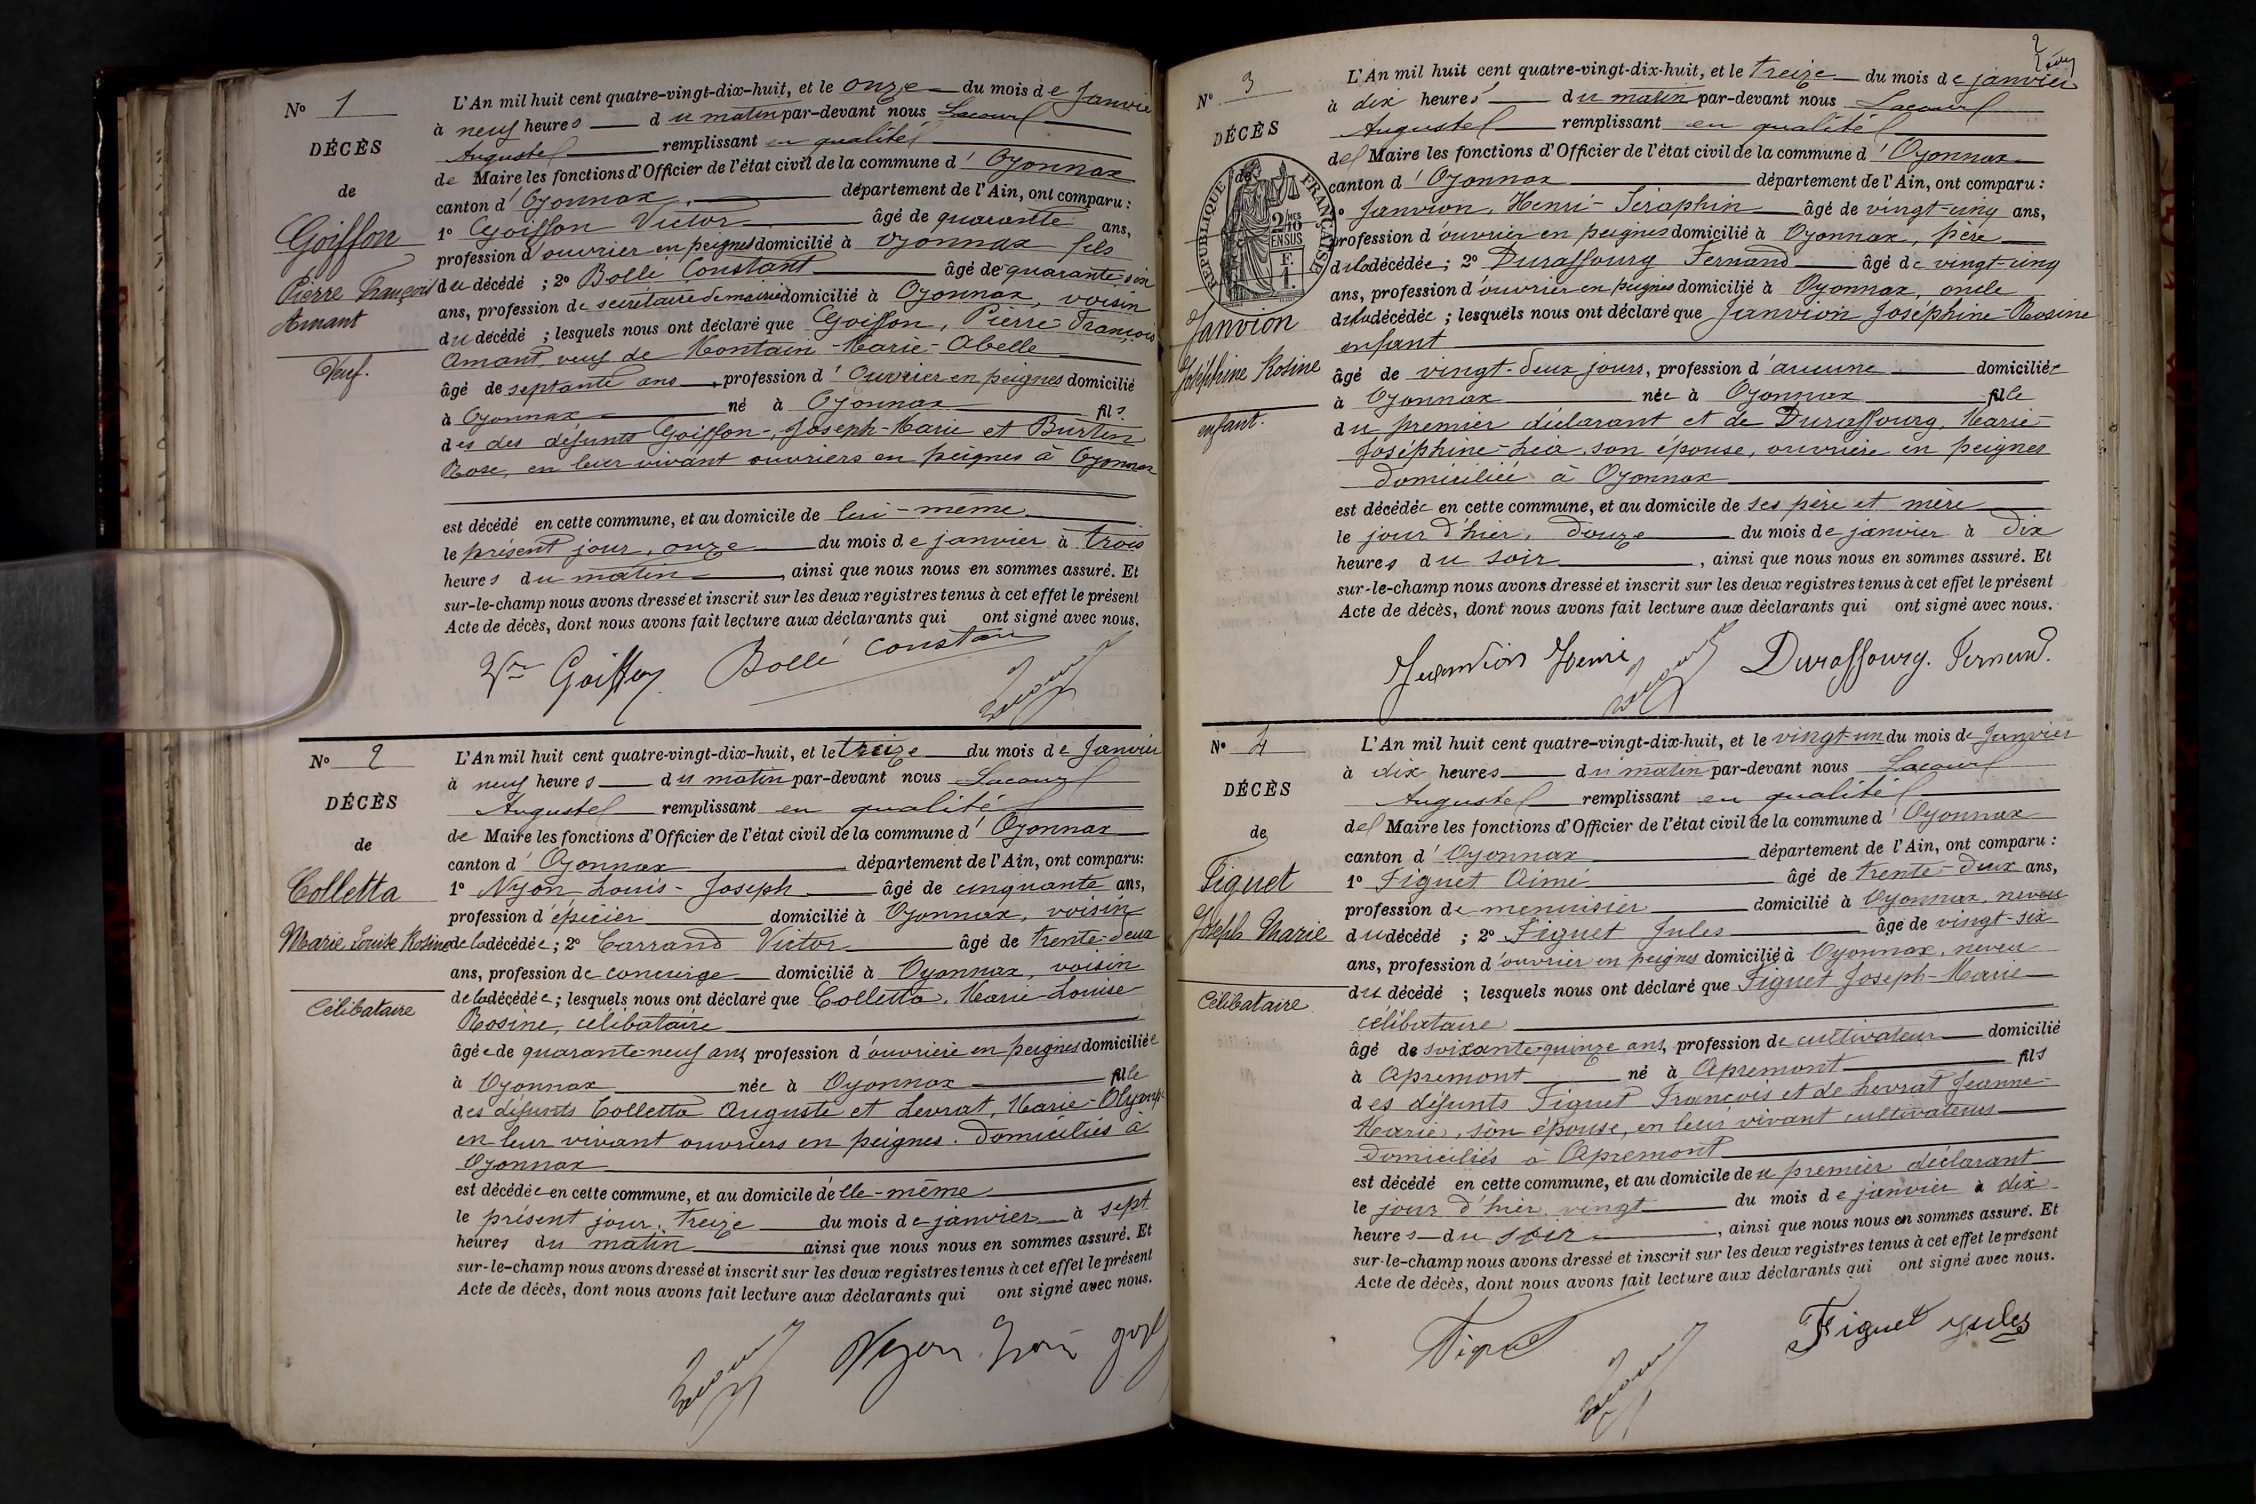 N° 1
DÉCÈS
de
Goiffon
Pierre François
Amant
Veuf.
L'An mil huit cent quatre-vingt-dix-huit, et le onze du mois de Janvier
à neuf heures du matin par-devant nous Lacour
Auguste remplissant en qualité
de Maire les fonctions d'Officier de l'état civil de la commune d'Oyonnax
canton d'Oyonnax, département de l'Ain, ont comparu :
1° Goiffon Victor âgé de quarante ans,
profession d'ouvrier en peignes domicilié à Oyonnax fils
du décédé ; 2° Bollé Constant âgé de quarante-six
ans, profession de secrétaire de mairie domicilié à Oyonnax, voisin
du décédé ; lesquels nous ont déclaré que Goiffon, Pierre-François
Amant, veuf de Montain-Marie-Abelle
âgé de septante ans, profession d'Ouvrier en peignes domicilié
à Oyonnax né à Oyonnax fils
des des défunts Goiffon, Joseph-Marie et Burtin
Rose, en leur vivant ouvriers en peignes à Oyonnax
est décédé en cette commune, et au domicile de lui-même
le présent jour, onze du mois de janvier à trois
heures du matin, ainsi que nous nous en sommes assuré. Et
sur-le-champ nous avons dressé et inscrit sur les deux registres tenus à cet effet le présent
Acte de décès, dont nous avons fait lecture aux déclarants qui ont signé avec nous.
Vor Goiffon Bollé Constan Lacour
N° 2
DÉCÈS
de
Colletta
Marie Louise Rosine
Célibataire
L'An mil huit cent quatre-vingt-dix-huit, et le treize du mois de Janvier
à neuf heures du matin par-devant nous Lacour
Auguste remplissant en qualité
de Maire les fonctions d'Officier de l'état civil de la commune d'Oyonnax
canton d'Oyonnax département de l'Ain, ont comparu:
1° Nyon Louis-Joseph âgé de cinquante ans,
profession d'épicier domicilié à Oyonnax, voisin
de la décédée; 2° Carrand Victor âgé de trente-deux
ans, profession de concierge domicilié à Oyonnax, voisin
de la décédée; lesquels nous ont déclaré que Colletta, Marie-Louise
Rosine, célibataire
âgée de quarante-neuf ans profession d'ouvrière en peignes domiciliée
à Oyonnax née à Oyonnax fille
des défunts Colletta Auguste et Levrat, Marie-Olympe
en leur vivant ouvriers en peignes. Domiciliés à
Oyonnax
est décédée en cette commune, et au domicile d'elle-même
le présent jour, treize du mois de janvier à sept
heures du matin ainsi que nous nous en sommes assuré. Et
sur-le-champ nous avons dressé et inscrit sur les deux registres tenus à cet effet le présent
Acte de décès, dont nous avons fait lecture aux déclarants qui ont signé avec nous.
Lacour Nyon
2
N° 3
DÉCÈS
de
RÉPUBLIQUE FRANÇAISE
2/10 EN SUS
F.
1.
Janvion
Joséphine Rosine
enfant.
L'An mil huit cent quatre-vingt-dix-huit, et le treize du mois de janvier
à dix heures du matin par-devant nous Lacour
Auguste remplissant en qualité
de Maire les fonctions d'Officier de l'état civil de la commune d'Oyonnax
canton d'Oyonnax département de l'Ain, ont comparu :
1° Janvion, Henri-Séraphin âgé de vingt-cinq ans,
profession d'ouvrier en peignes domicilié à Oyonnax, père
de la décédée; 2° Duraffourg Fernand âgé de vingt-cinq
ans, profession d'ouvrier en peignes domicilié à Oyonnax, oncle
de la décédée ; lesquels nous ont déclaré que Janvion Joséphine-Rosine
enfant
âgé de vingt-deux jours, profession d'aucune domiciliée
à Oyonnax née à Oyonnax fille
du premier déclarant et de Duraffourg, Marie-
Joséphine-Léa, son épouse, ouvrière en peignes
domiciliée à Oyonnax
est décédée en cette commune, et au domicile de ses père et mère
le jour d'hier, douze du mois de janvier à dix
heures du soir, ainsi que nous nous en sommes assuré. Et
sur-le-champ nous avons dressé et inscrit sur les deux registres tenus à cet effet le présent
Acte de décès, dont nous avons fait lecture aux déclarants qui ont signé avec nous.
Janvion Henri Lacour Duraffourg. Fernand.
N° 4
DÉCÈS
de
Figuet
Joseph Marie
Célibataire
L'An mil huit cent quatre-vingt-dix-huit, et le vingt-un du mois de Janvier
à dix heures du matin par-devant nous Lacour
Auguste remplissant en qualité
de Maire les fonctions d'Officier de l'état civil de la commune d'Oyonnax
canton d'Oyonnax département de l'Ain, ont comparu :
1° Figuet Aimé âgé de trente-deux ans,
profession de menuisier domicilié à Oyonnax, neveu
du décédé ; 2° Figuet Jules âgé de vingt-six
ans, profession d'ouvrier en peignes domicilié à Oyonnax, neveu
du décédé ; lesquels nous ont déclaré que Figuet Joseph-Marie
célibataire
âgé de soixante-quinze ans, profession de cultivateur domicilié
à Apremont né à Apremont fils
des défunts Figuet François et de Levrat Jeanne-
Marie, son épouse, en leur vivant cultivateurs
domiciliés à Apremont
est décédé en cette commune, et au domicile du premier déclarant
le jour d'hier vingt du mois de janvier à dix
heures du soir, ainsi que nous nous en sommes assuré. Et
sur-le-champ nous avons dressé et inscrit sur les deux registres tenus à cet effet le présent
Acte de décès, dont nous avons fait lecture aux déclarants qui ont signé avec nous.
Figuet Lacour Figuet Jules